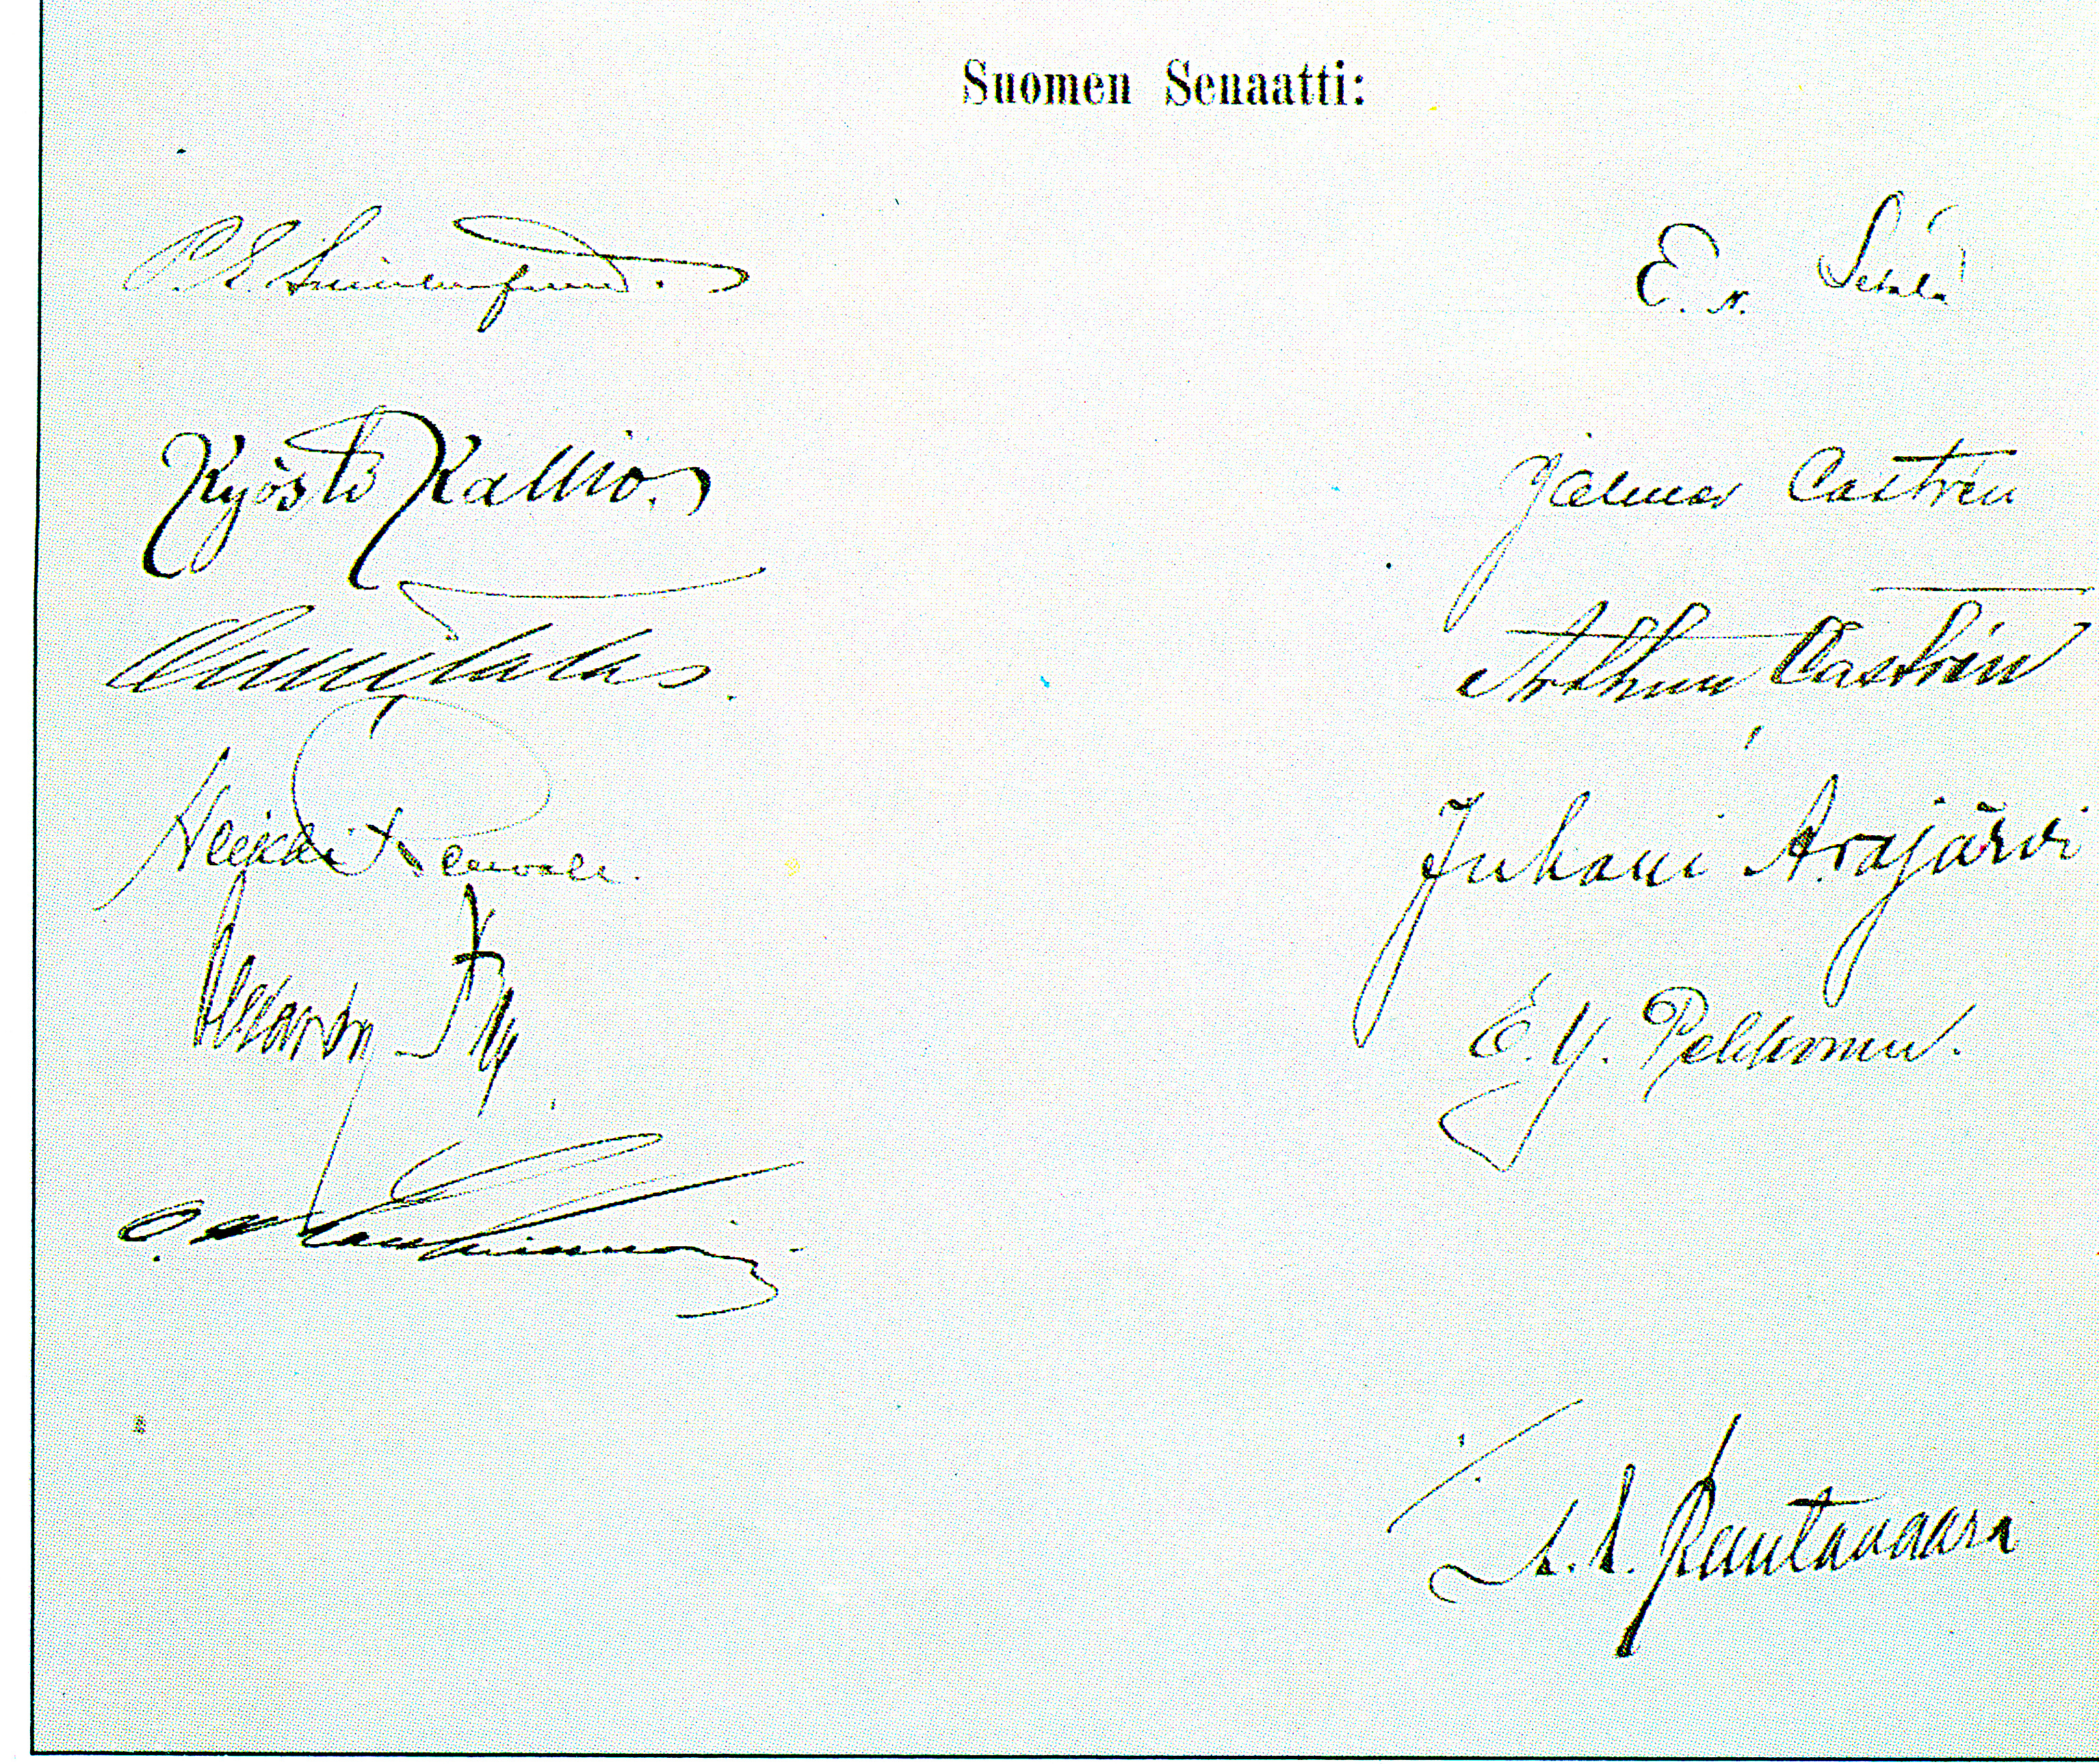 Suomen Senaatti:
P. E. Svinhufvud.
E. N. Setälä
Kyösti Kallio.
Jalmar Castrén
Onni Talas.
Arthur Castrén
Heikki Renvall.
Juhani Arajärvi
Alexander Frey.
E. Y. Pehkonen.
O. W. Louhivuori
A. A. Rautavaara